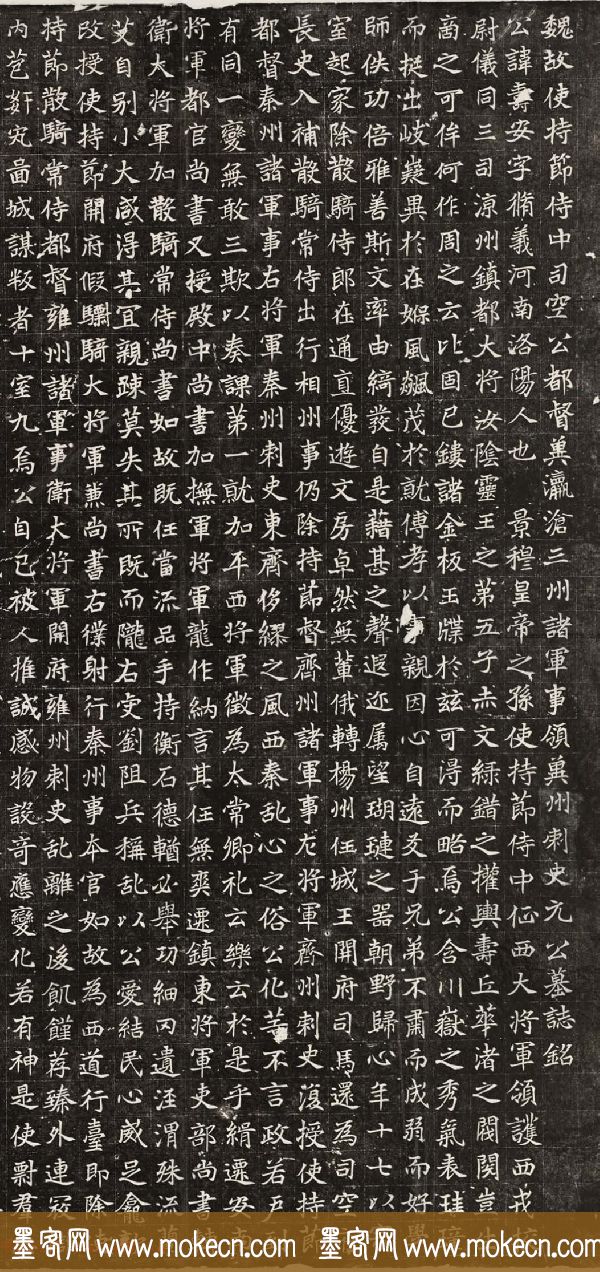 魏故使持節侍中司空公都督冀瀛滄三州諸軍事領冀州刺史元公墓誌銘
公諱壽安字脩義河南洛陽人也　景穆皇帝之孫使持節侍中征西大將軍領護西戎校
尉儀同三司涼州鎮都大將汝陰靈王之第五子赤文綠錯之權輿壽丘華渚之閥閱豈生
商之可侔何作周之云比固已鏤諸金板玉牒於玆可得而略焉公含川嶽之秀氣表珪璋
而挺出岐嶷異於在緥風飆茂於就傅孝以事親因心自遠友于兄弟不肅而成弱而好學
師佚功倍雅善斯文率由綺發自是藉甚之聲遐迩属望瑚璉之器朝野歸心年十七以
室起家除散騎侍郎在通直優遊文房卓然無輩俄轉楊州任城王開府司馬還為司空
長史入補散騎常侍出行相州事仍除持節督齊州諸軍事左將軍齊州刺史復授使持節
都督秦州諸軍事右將軍秦州刺史東齊侈繆之風西秦乱心之俗公化若不言政若戶
有同一變無敢三欺以奏課第一就加平西將軍徵為太常卿礼云樂云於是乎緝還安南
將軍都官尚書又授殿中尚書加撫軍將軍龍作納言其任無爽還鎮東將軍吏部尚書
衛大將軍加散騎常侍尚書如故既任當流品手持衡石德輶必舉功細罔遺涇渭殊流蘭
艾自别小大咸得其宜親踈莫失其所既而隴右突劉阻兵稱乱以公愛結民心威足龕
改授使持節開府假驃騎大將軍兼尚書右僕射行秦州事本官如故為西道行臺即除
持節散騎常侍都督雍州諸軍事衛大將軍開府雍州刺史乱離之後飢饉荐臻外連寇
內苞奸宄啚城謀叛者十室九焉公自已被人推誠感物設奇應變化若有神是使
墨客网 www.mokecn.com 墨客网 www.mokecn.com